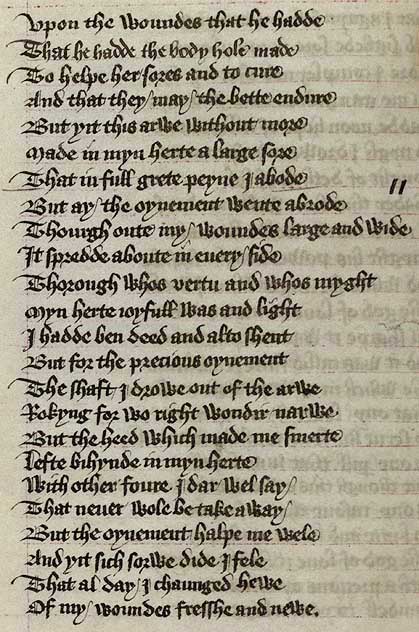 Vpon the woundes that he hadde
That he hadde the body hole made
To helpe her sores and to cure
And that they / may / the bette endure
But yit this arwe without more
Made in myn herte a large sore
That in full grete peyne I abode
But ay / the oynement wente abrode
Thourgh oute my / woundes large and wide
It spredde aboute in euery / side
Thorough whos vertu and whos myght
Myn herte ioyfull was and light
I hadde ben deed and alto shent
But for the precious oynement
The shaft I drowe out of the arwe
Rokyng for wo right wondir narwe
But the heed which made me smerte
Lefte bihynde in myn herte
With other foure I dar wel say /
That neuer wole be take away /
But the oynement halpe me wele
And yit sich sorwe dide I fele
That al day / I chaunged hewe
Of my / woundes fresshe and newe.